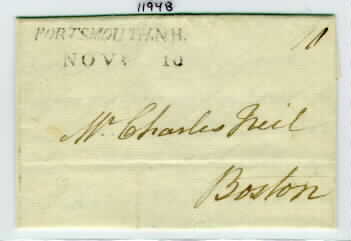 11948
PORTSMOUTH.N.H.
NOVR 10
10
Mr. Charles Neil
Boston